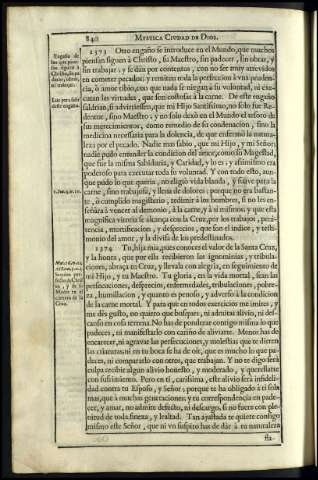 840 MYSTICA CIVDAD DE DIOS.
1373 Otro engaño se introduce en el Mundo, que muchos
piensan siguen à Christo, su Maestro, sin padecer, sin obrar, y
sin trabajar; y se dàn por contentos, con no ser muy atrevidos
en cometer pecados; y remiten toda la perfeccion à vna pruden-
cia, ò amor tibio, con que nada se niegan à su voluntad, ni exe-
cutan las virtudes, que son costosas à la carne. De este engaño
saldrian, si advirtiessen, que mi Hijo Santissimo, no solo fue Re-
dentor, sino Maestro; y no solo dexò en el Mundo el tesoro de
sus merecimientos, como remedio de su condenacion, sino la
medicina necessaria para la dolencia, de que enfermò la natura-
leza por el pecado. Nadie mas sabio, que mi Hijo, y mi Señor;
nadie pudo entender la condicion del amor, como su Magestad,
que fue la misma Sabiduria, y Caridad, y lo es; y assimismo era
poderoso para executar toda su voluntad. Y con todo esto, aun-
que pudo lo que queria, no eligiò vida blanda, y suave para la
carne, sino trabajosa, y llena de dolores; porque no era bastan-
te, ò cumplido magisterio, redimir à los hombres, si no les en-
señàra à vencer al demonio, à la carne, y à si mismos; y que esta
magnifica victoria se alcança con la Cruz, por los trabajos, peni-
tencia, mortificacion, y desprecios, que son el indice, y testi-
monio del amor, y la divisa de los predestinados.
1374 Tu, hija mia, pues conoces el valor de la Santa Cruz,
y la honra, que por ella recibieron las ignominias, y tribula-
ciones, abraça tu Cruz, y llevala con alegria, en seguimiento de
mi Hijo, y tu Maestro. Tu gloria, en la vida mortal, sean las
persecuciones, desprecios, enfermedades, tribulaciones, pobre-
za, humillacion, y quanto es penoso, y adverso à la condicion
de la carne mortal. Y para que en todos exercicios me imites, y
me dès gusto, no quiero que busques, ni admitas alivio, ni des-
canso en cosa terrena. No has de ponderar contigo misma lo que
padeces, ni manifestarlo con cariño de aliviarte. Menos has de
encarecer, ni agravar las persecuciones, y molestias que te dieren
las criaturas; ni en tu boca se ha de oìr, que es mucho lo que pa-
deces, ni compararlo con otros, que trabajan. Y no te digo serà
culpa recibir algun alivio honesto, y moderado, y querellarte
con sufrimiento. Pero en ti, carissima, este alivio serà infideli-
dad contra tu Esposo, y Señor; porque te ha obligado à ti sola
mas, que à muchas generaciones; y tu correspondencia en pade-
cer, y amar, no admite defecto, ni descargo, si no fuere con ple-
nitud de toda fineza, y lealtad. Tan ajustada te quiere consigo
mismo este Señor, que ni vn suspiro has de dàr à tu naturaleza